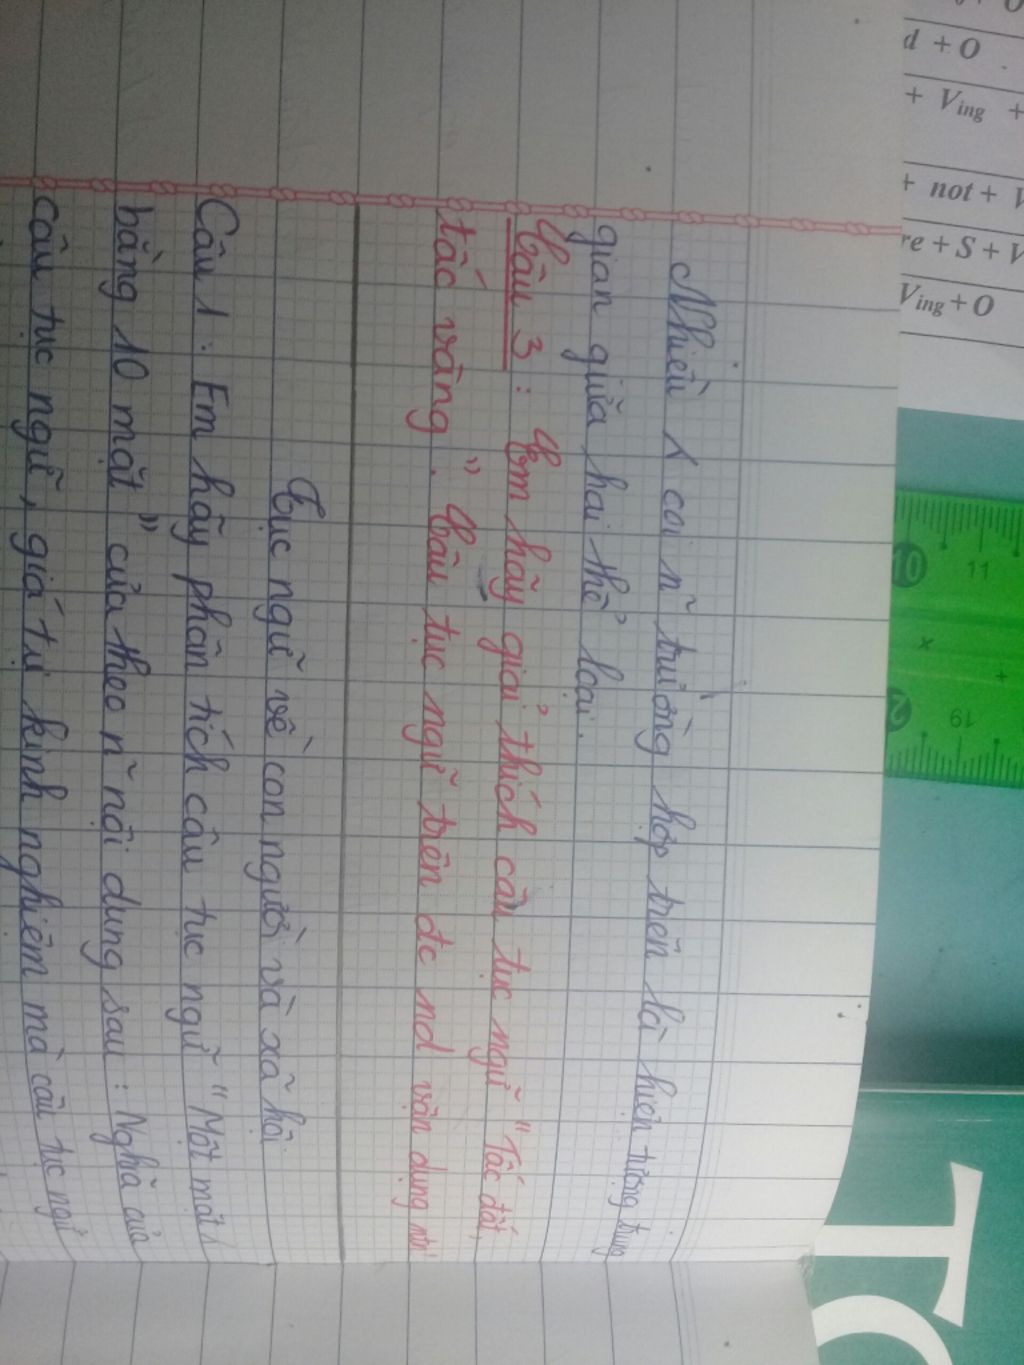 Nhiều ≻ coi n~ trường hợp trên là hiện tượng trung
gian giữa hai thể loại.
Câu 3: Em hãy giải thích câu tục ngữ "Tấc đất,
tấc vàng". Câu tục ngữ trên đc nd vận dụng ntn
Tục ngữ về con người và xã hội
Câu 1: Em hãy phân tích câu tục ngữ "Một mặt
bằng 10 mặt" của theo n~ nội dung sau: Nghĩa của
câu tục ngữ, giá trị kinh nghiệm mà câu tục ngữ
d + O
+ Ving +
+ not + V
re + S + V
Ving + O
10 11
19